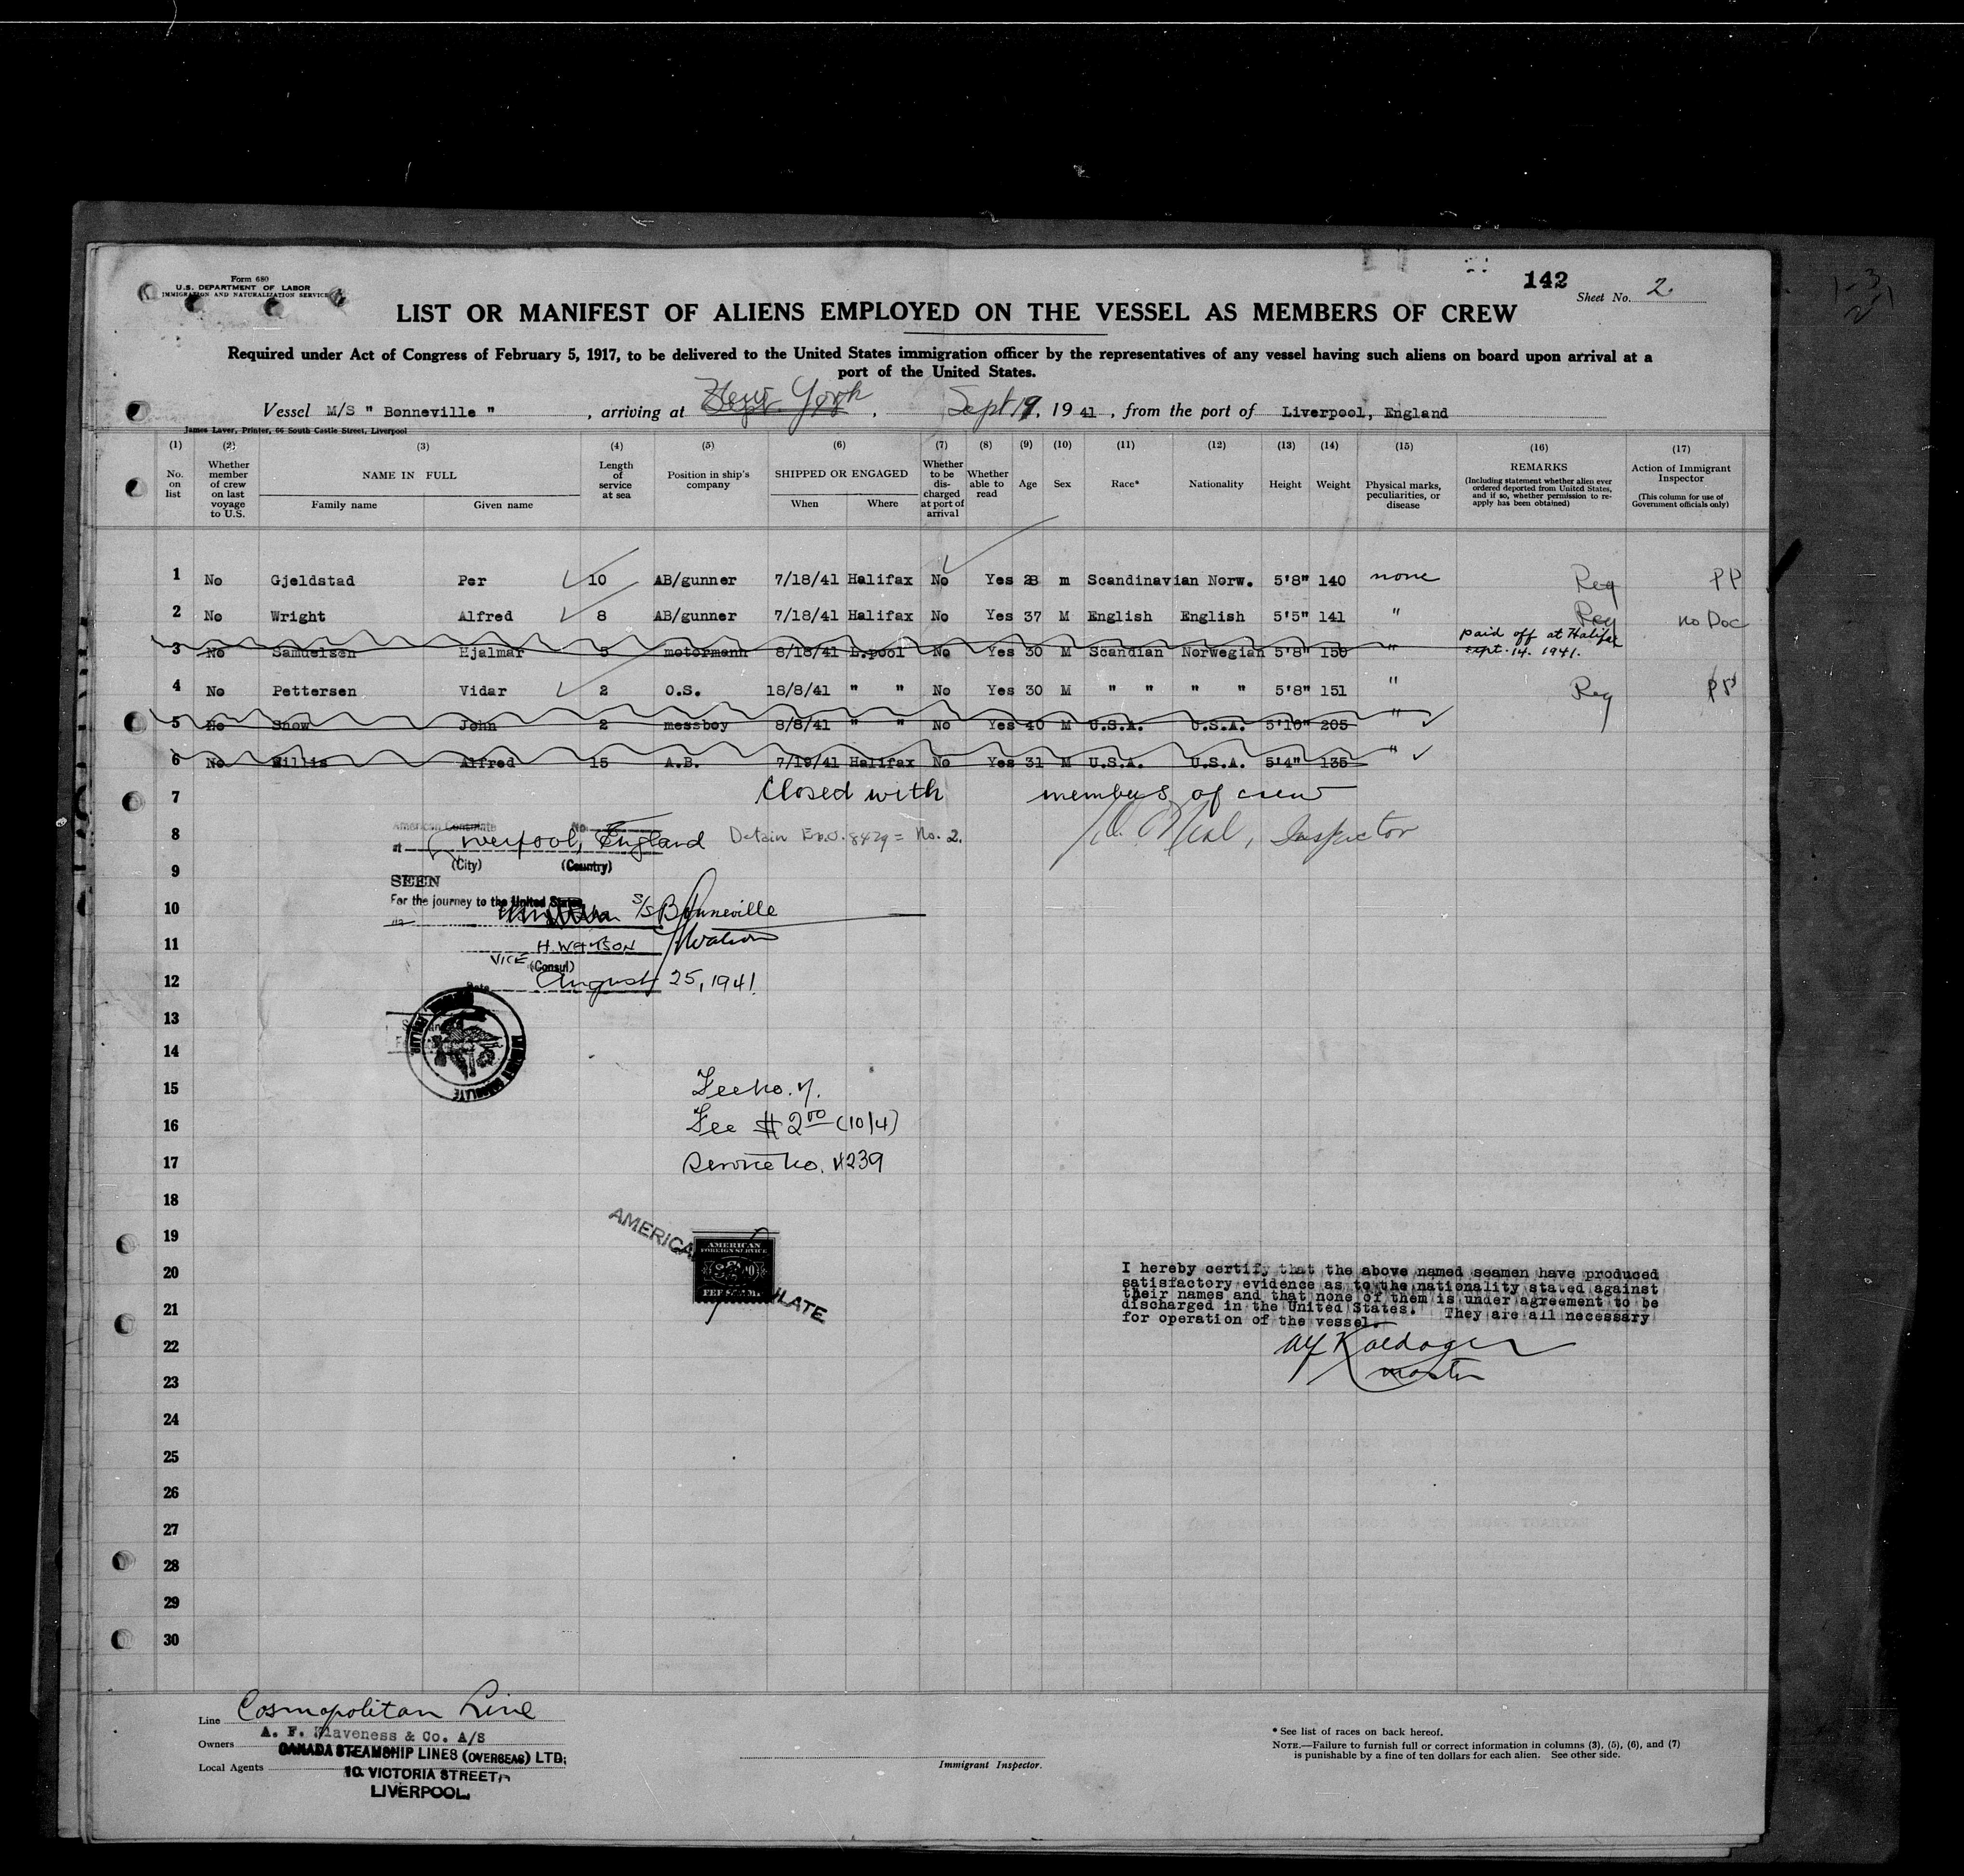 142
Form 680
U.S. DEPARTMENT OF LABOR
IMMIGRATION AND NATURALIZATION SERVICE
Sheet No. 2.
LIST OR MANIFEST OF ALIENS EMPLOYED ON THE VESSEL AS MEMBERS OF CREW
Required under Act of Congress of February 5, 1917, to be delivered to the United States immigration officer by the representatives of any vessel having such aliens on board upon arrival at a
port of the United States.
Vessel M/S " Bonneville " , arriving at New York , Sept 19, 1941 , from the port of Liverpool, England
James Laver, Printer, 66 South Castle Street, Liverpool
(1) (2) (3) (4) (5) (6) (7) (8) (9) (10) (11) (12) (13) (14) (15) (16) (17)
No. on list
Whether member of crew on last voyage to U.S.
NAME IN FULL
Family name Given name
Length of service at sea
Position in ship's company
SHIPPED OR ENGAGED
When Where
Whether to be discharged at port of arrival
Whether able to read
Age
Sex
Race*
Nationality
Height
Weight
Physical marks, peculiarities, or disease
REMARKS
(Including statement whether alien ever ordered deported from United States, and if so, whether permission to re-apply has been obtained)
Action of Immigrant Inspector
(This column for use of Government officials only)
1 No Gjeldstad Per 10 AB/gunner 7/18/41 Halifax No Yes 28 m Scandinavian Norw. 5'8" 140 none Reg PP
2 No Wright Alfred 8 AB/gunner 7/18/41 Halifax No Yes 37 M English English 5'5" 141 " Reg no Doc
3 No Samuelsen Hjalmar 5 motormann 8/18/41 L.pool No Yes 30 M Scandian Norwegian 5'8" 150 " paid off at Halifax
sept. 14. 1941.
4 No Pettersen Vidar 2 O.S. 18/8/41 " " No Yes 30 M " " " " 5'8" 151 " Reg PP
5 No Snow John 2 messboy 8/8/41 " " No Yes 40 M U.S.A. U.S.A. 5'10" 205 "
6 No Willis Alfred 15 A.B. 7/19/41 Halifax No Yes 31 M U.S.A. U.S.A. 5'4" 135 "
7 Closed with members of crew
American Consulate No.
8 at Liverpool, England Detain No. 2. Inspector
(City) (Country)
9
SEEN
For the journey to the United States
10 S/S Bonneville
11 H. WATSON
VICE (Consul)
12 Date August 25, 1941
13
14
15 Fee No. 7.
16 Fee $2.00 (10/4)
17 Service No. 4239
18
19
AMERICAN CONSULATE
AMERICAN
FOREIGN SERVICE
FEE STAMP
20
21
22
23
I hereby certify that the above named seamen have produced
satisfactory evidence as to the nationality stated against
their names and that none of them is under agreement to be
discharged in the United States. They are all necessary
for operation of the vessel.
master
24
25
26
27
28
29
30
Line Cosmopolitan Line
Owners A. F. Klaveness & Co. A/S
Local Agents CANADA STEAMSHIP LINES (OVERSEAS) LTD;
10. VICTORIA STREET,
LIVERPOOL.
Immigrant Inspector.
* See list of races on back hereof.
NOTE.—Failure to furnish full or correct information in columns (3), (5), (6), and (7)
is punishable by a fine of ten dollars for each alien. See other side.